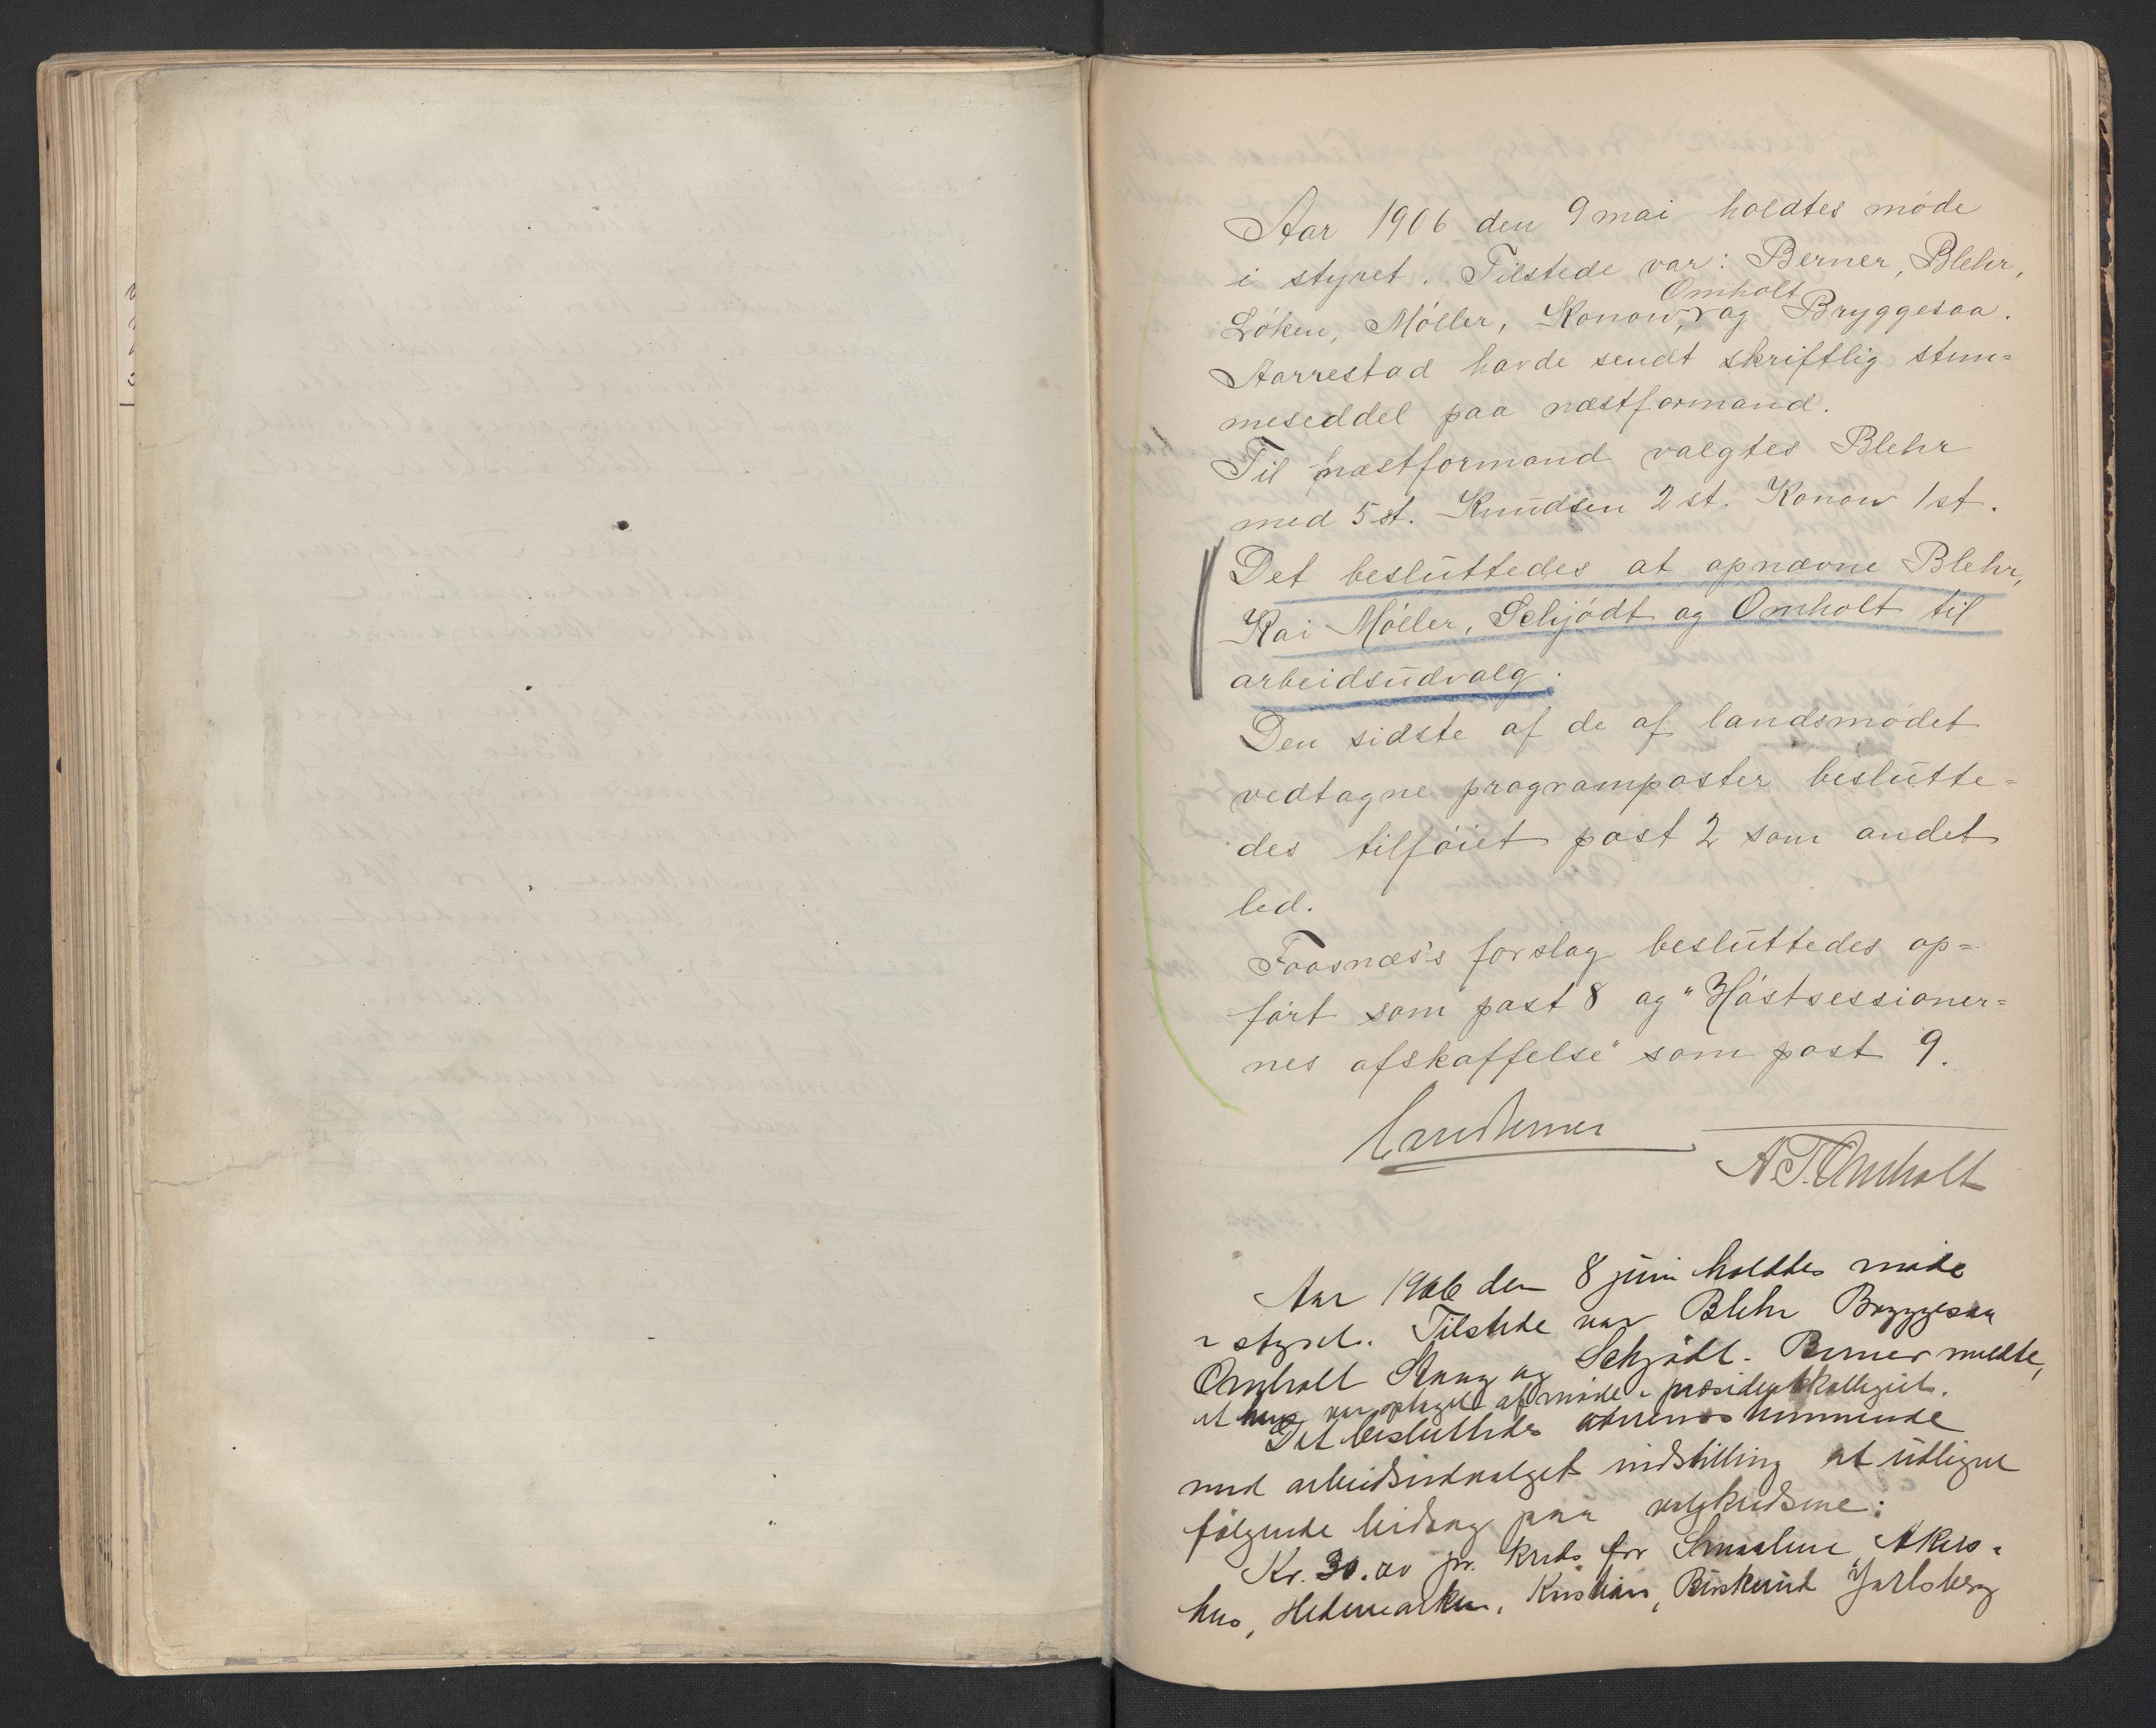 Aar 1906 den 9 mai holdtes møde
i styret. Tilstede var: Berner, Blehr,
Løken, Møller, Konow, Omholt og Bryggesaa.
Aarrestad havde sendt skriftlig stem=
meseddel paa næstformand.
Til næstformand valgtes Blehr
med 5 st. Knudsen 2 st. Konow 1 st.
Det besluttedes at opnævne Blehr,
Kai Møller, Schjødt og Omholt til
arbeidsudvalg.
Den sidste af de af landsmødet
vedtagne programposter beslutte=
des tilføiet post 2 som andet
led.
Faasnæs's forslag besluttedes op=
ført som post 8 og "Høstsessioner=
nes afskaffelse" som post 9.
Carl Berner
A. T. Omholt
Aar 1906 den 8 juni holdtes møde
i styret. Tilstede var Blehr Bryggesaa
Omholt Stang og Schjødt. Berner meldte,
at han var optaget af møde i præsidentskollegiet.
Det besluttedes overensstemmende
med arbeidsudvalgets indstilling at utligne
følgende leidang paa valgkredsene:
Kr. 30.00 pr. kreds for Smaalene Akers=
hus, Hedemarken, Kristians, Buskerud Jarlsberg